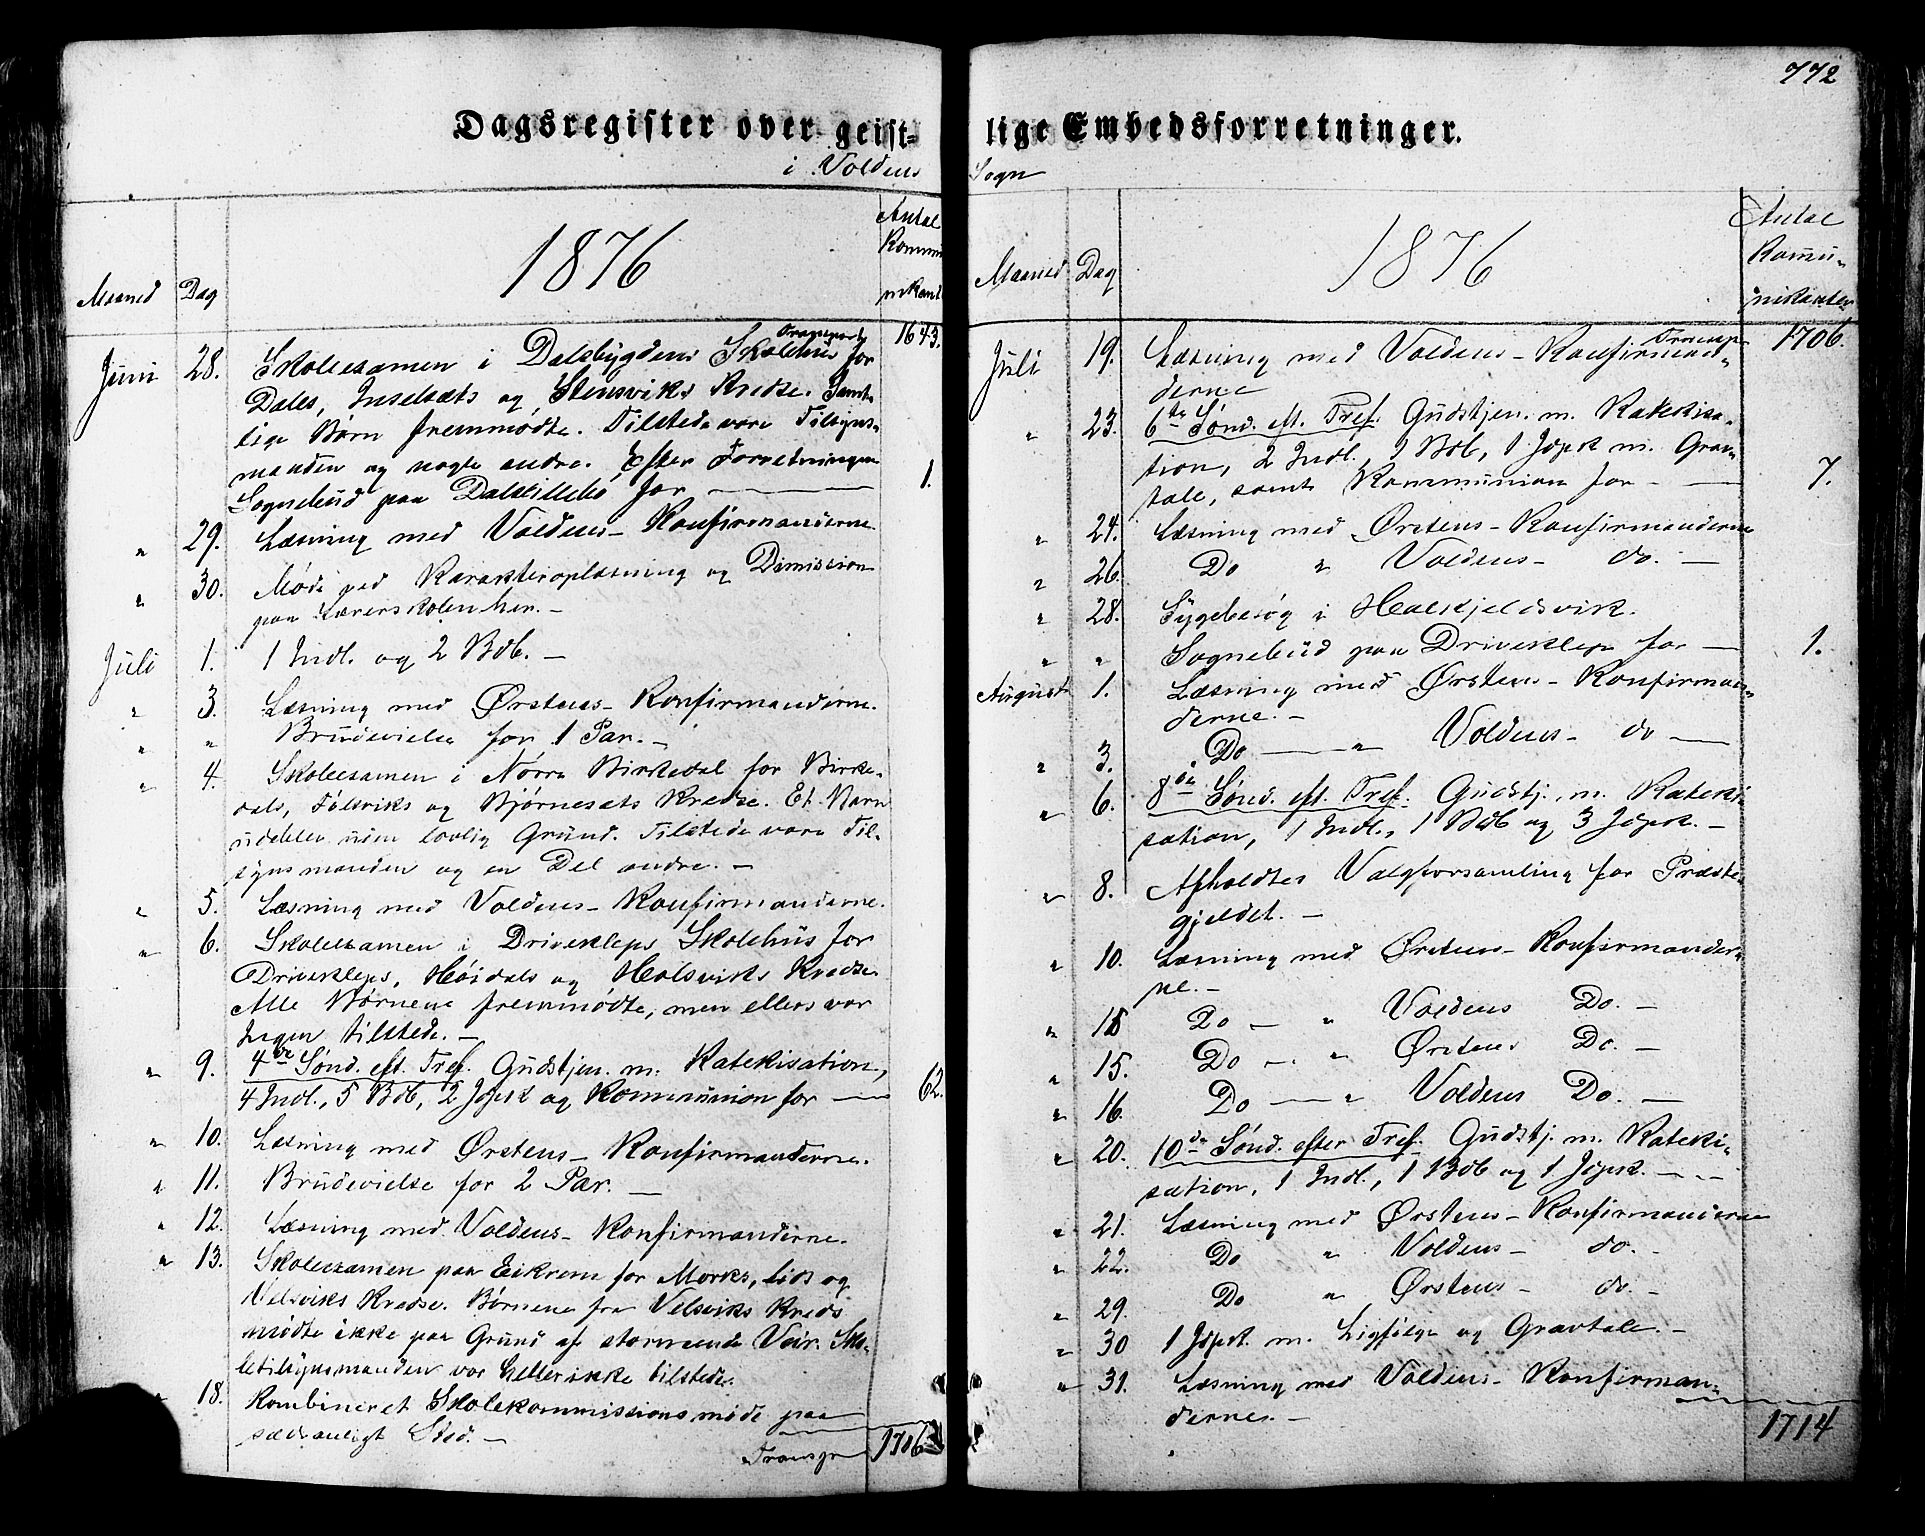 772
Dagsregister over geist-
i Voldens
1876
Antal
Kommu
nikant
Maaned Dag
Transport 1643.
Juni 28. Skoleexamen i Dalsbygdens Skolehus for
Dales, Inselsæts og Stensviks Kredse. Samt-
lige Børn fremmødte. Tilstede vare Tilsyns-
manden og nogle andre. Efter Forretningen
Sognebud paa Dalstillebø for — 1.
" 29. Læsning med Voldens- Konfirmanderne.
" 30. Møde ved Karakteroplæsning og Dimission
paa Lærerskolen her. —
Juli 1. 1 Indl. og 2 Bdb. —
" 3. Læsning med Ørstens- Konfirmanderne.
" " Brudevielse for 1 Par. —
" 4. Skoleexamen i Nørre Birkedal for Birke-
dals, Følsviks og Bjørnesæts Kredse. Et Barn
udeblev uden lovlig Grund. Tilstede vare Til-
synsmanden og en Del andre. —
" 5. Læsning med Voldens- Konfirmanderne.
" 6. Skoleexamen i Drivekleps Skolehus for
Drivekleps, Høidals og Halsviks Kredse.
Alle Børnene fremmødte, men ellers var
Ingen tilstede. —
" 9. 4de Sønd. eft. Tref. Gudstjen. m. Katekisation,
4 Indl., 5 Bdb, 2 Jdpk og Kommunion for — 62.
" 10. Læsning med Ørstens- Konfirmanderne.
" 11. Brudevielse for 2 Par. —
" 12. Læsning med Voldens- Konfirmanderne.
" 13. Skoleexamen paa Eikrem for Morks, Lids og
Velsviks Kredse. Børnene fra Velsviks Kreds
mødte ikke paa Grund af stormende Veir. Sko-
letilsynsmanden var heller ikke tilstede.
" 18. Kombineret Skolekommissionsmøde paa
sædvanligt Sted. —
Transp. 1706
lige Embedsforretninger.
Sogn
1876
Antal
Kommu-
nikanter
Maaned Dag
Transp. 1706.
Juli 19. Læsning med Voldens- Konfirman-
derne
" 23. 6te Sønd. eft. Tref. Gudstjen. m. Katekisa-
tion, 2 Indl., 1 Bdb, 1 Jdpk m. Grav-
tale, samt Kommunion for — 7.
" 24. Læsning med Ørstens- Konfirmanderne
" 26. Do " Voldens- do. —
" 28. Sygebesøg i Halkjeldsvik.
" " Sognebud paa Driveklep for — 1.
August 1. Læsning med Ørstens- Konfirman-
derne. —
" 3. Do — " Voldens- do —
" 6. 8de Sønd. eft. Tref. Gudstj. m. Kateki-
sation, 1 Indl., 1 Bdb og 3 Jdpk. —
" 8. Afholdtes Valgforsamling for Præste-
gjeldet. —
" 10. Læsning med Ørstens- Konfirmander-
ne. —
" Do — " Voldens Do. —
" 15. Do — " Ørstens Do. —
" 16. Do — " Voldens Do. —
" 20. 10de Sønd. efter Tref. Gudstj. m. Kateki-
sation, 1 Indl., 1 Bdb og 1 Jdpk. —
" 21. Læsning med Ørstens- Konfirmanderne
" 22. Do " Voldens- do. —
" 29. Do " Ørstens- do. —
" 30 1 Jdpk. m. Ligfølge og Gravtale. —
" 31. Læsning med Voldens- Konfirman-
derne. —
1714